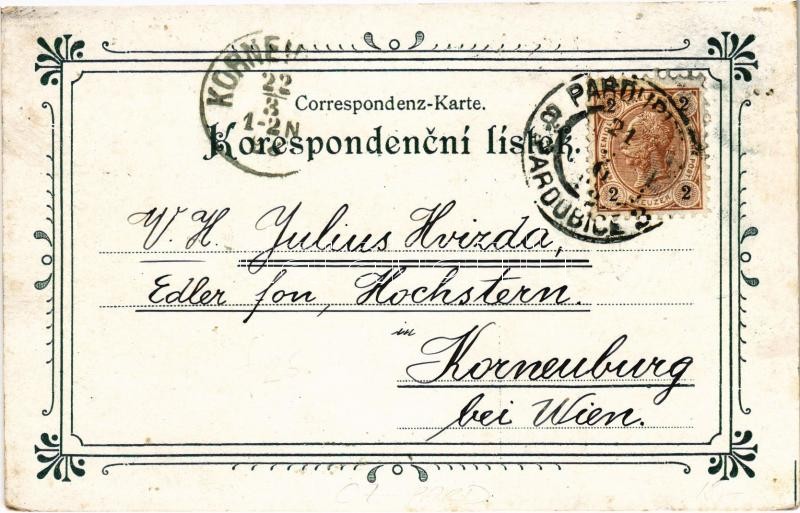 KORNEU
22
3
1-2N
Correspondenz-Karte.
Korespondenční lístek.
PARDUBI
21
PARDUBICE
2 2
2 2
KREUZER
V. H. Julius Hvizda,
Edler fon, Hochstern.
in
Korneuburg
bei Wien.